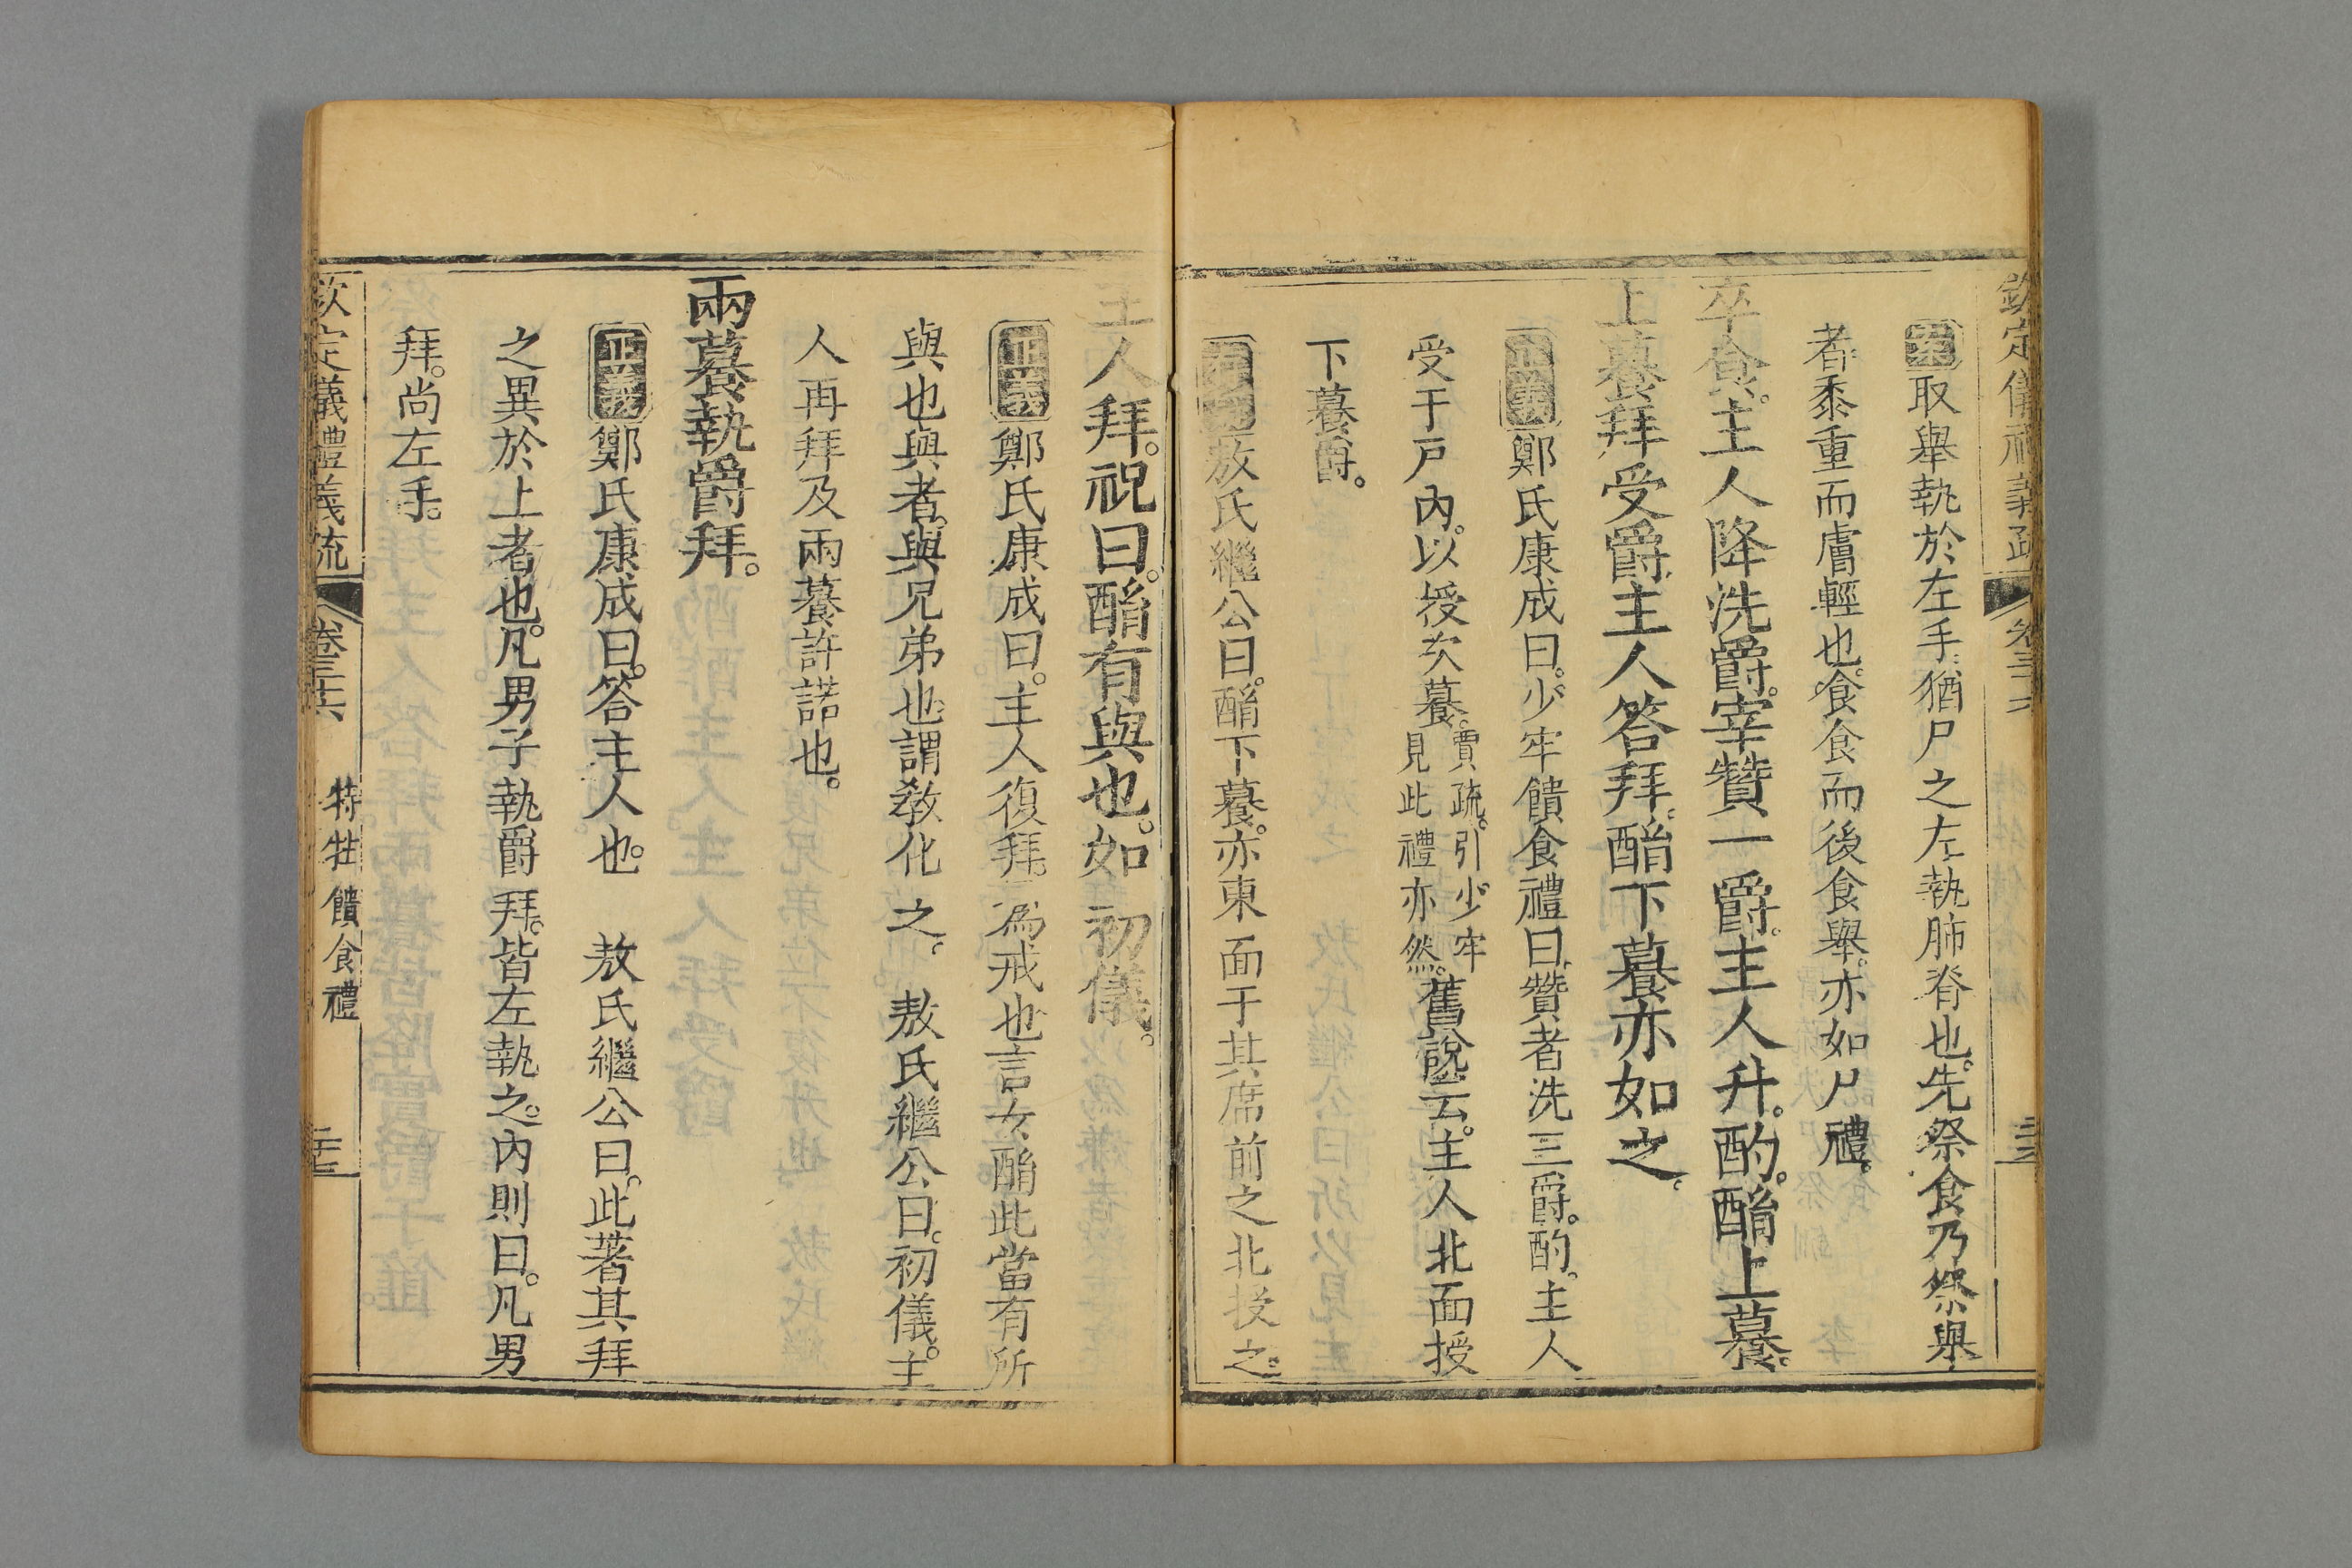 欽定儀禮義疏 卷三十六
案取舉執於左手猶尸之左執肺脊也。先祭食乃祭舉
者黍重而膚輕也。食食而後食舉。亦如尸禮。
卒食。主人降洗爵。宰贊一爵。主人升。酌。酳上䭆。
上䭆拜受爵。主人答拜。酳下䭆亦如之。
正義鄭氏康成曰。少牢饋食禮曰。贊者洗三爵。酌。主人
受于戸內。以授次䭆。賈疏。引少牢見此禮亦然。舊說云。主人北面授
下䭆爵。
敖氏繼公曰。酳下䭆。亦東面于其席前之北授之。
主人拜。祝曰。酳有與也。如初儀。
正義鄭氏康成曰。主人復拜。為戒也。言女酳此當有所
與也。與者。與兄弟也。謂教化之。 敖氏繼公曰。初儀。主
人再拜及兩䭆許諾也。
兩䭆執爵拜。
正義鄭氏康成曰。答主人也。 敖氏繼公曰。此著其拜
之異於上者也。凡男子執爵拜。皆左執之。內則曰。凡男
拜。尚左手。
欽定儀禮義疏 卷三十六 特牲饋食禮